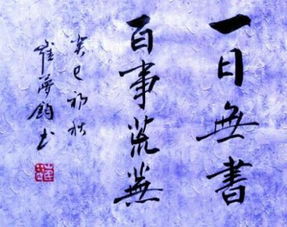 一日無書
百事荒蕪
癸巳初秋
崔海鈞书